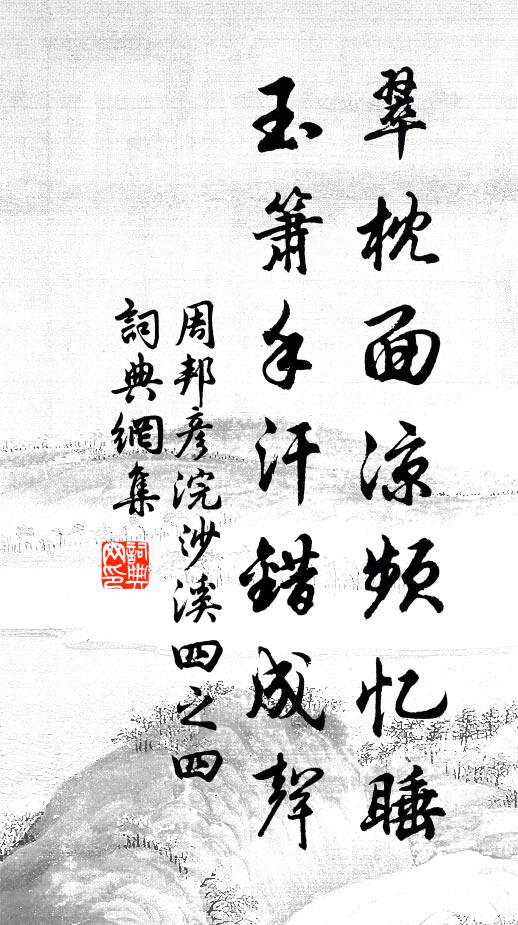 翠枕面凉频忆睡
玉箫手汗錯成聲
周邦彦浣沙溪四之四
詞典網集
詞典網印